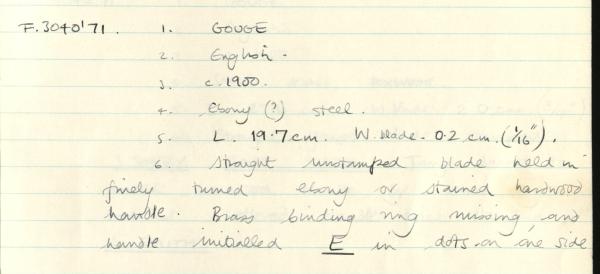 F.3040'71. 1. GOUGE
2. English.
3. c.1900.
4. Ebony (?) steel.
5. L. 19.7cm. W. blade. 0.2 cm. (1/16").
6. Straight unstamped blade held in
finely turned ebony or stained hardwood
handle. Brass binding ring missing, and
handle initialled E in dots on one side